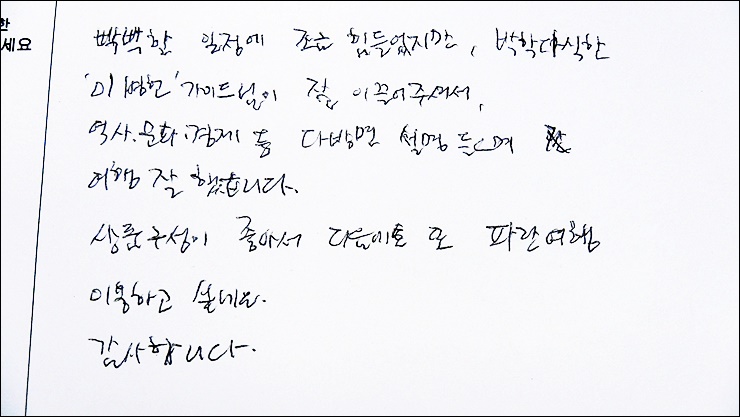 한
세요
빡빡한 일정에 조금 힘들었지만, 박학다식한
'이병헌' 가이드님이 잘 이끌어주셔서,
역사.문화.경제 등 다방면 설명 들으며
여행 잘 했습니다.
상품구성이 좋아서 다음에도 또 파란여행
이용하고 싶네요.
감사합니다.